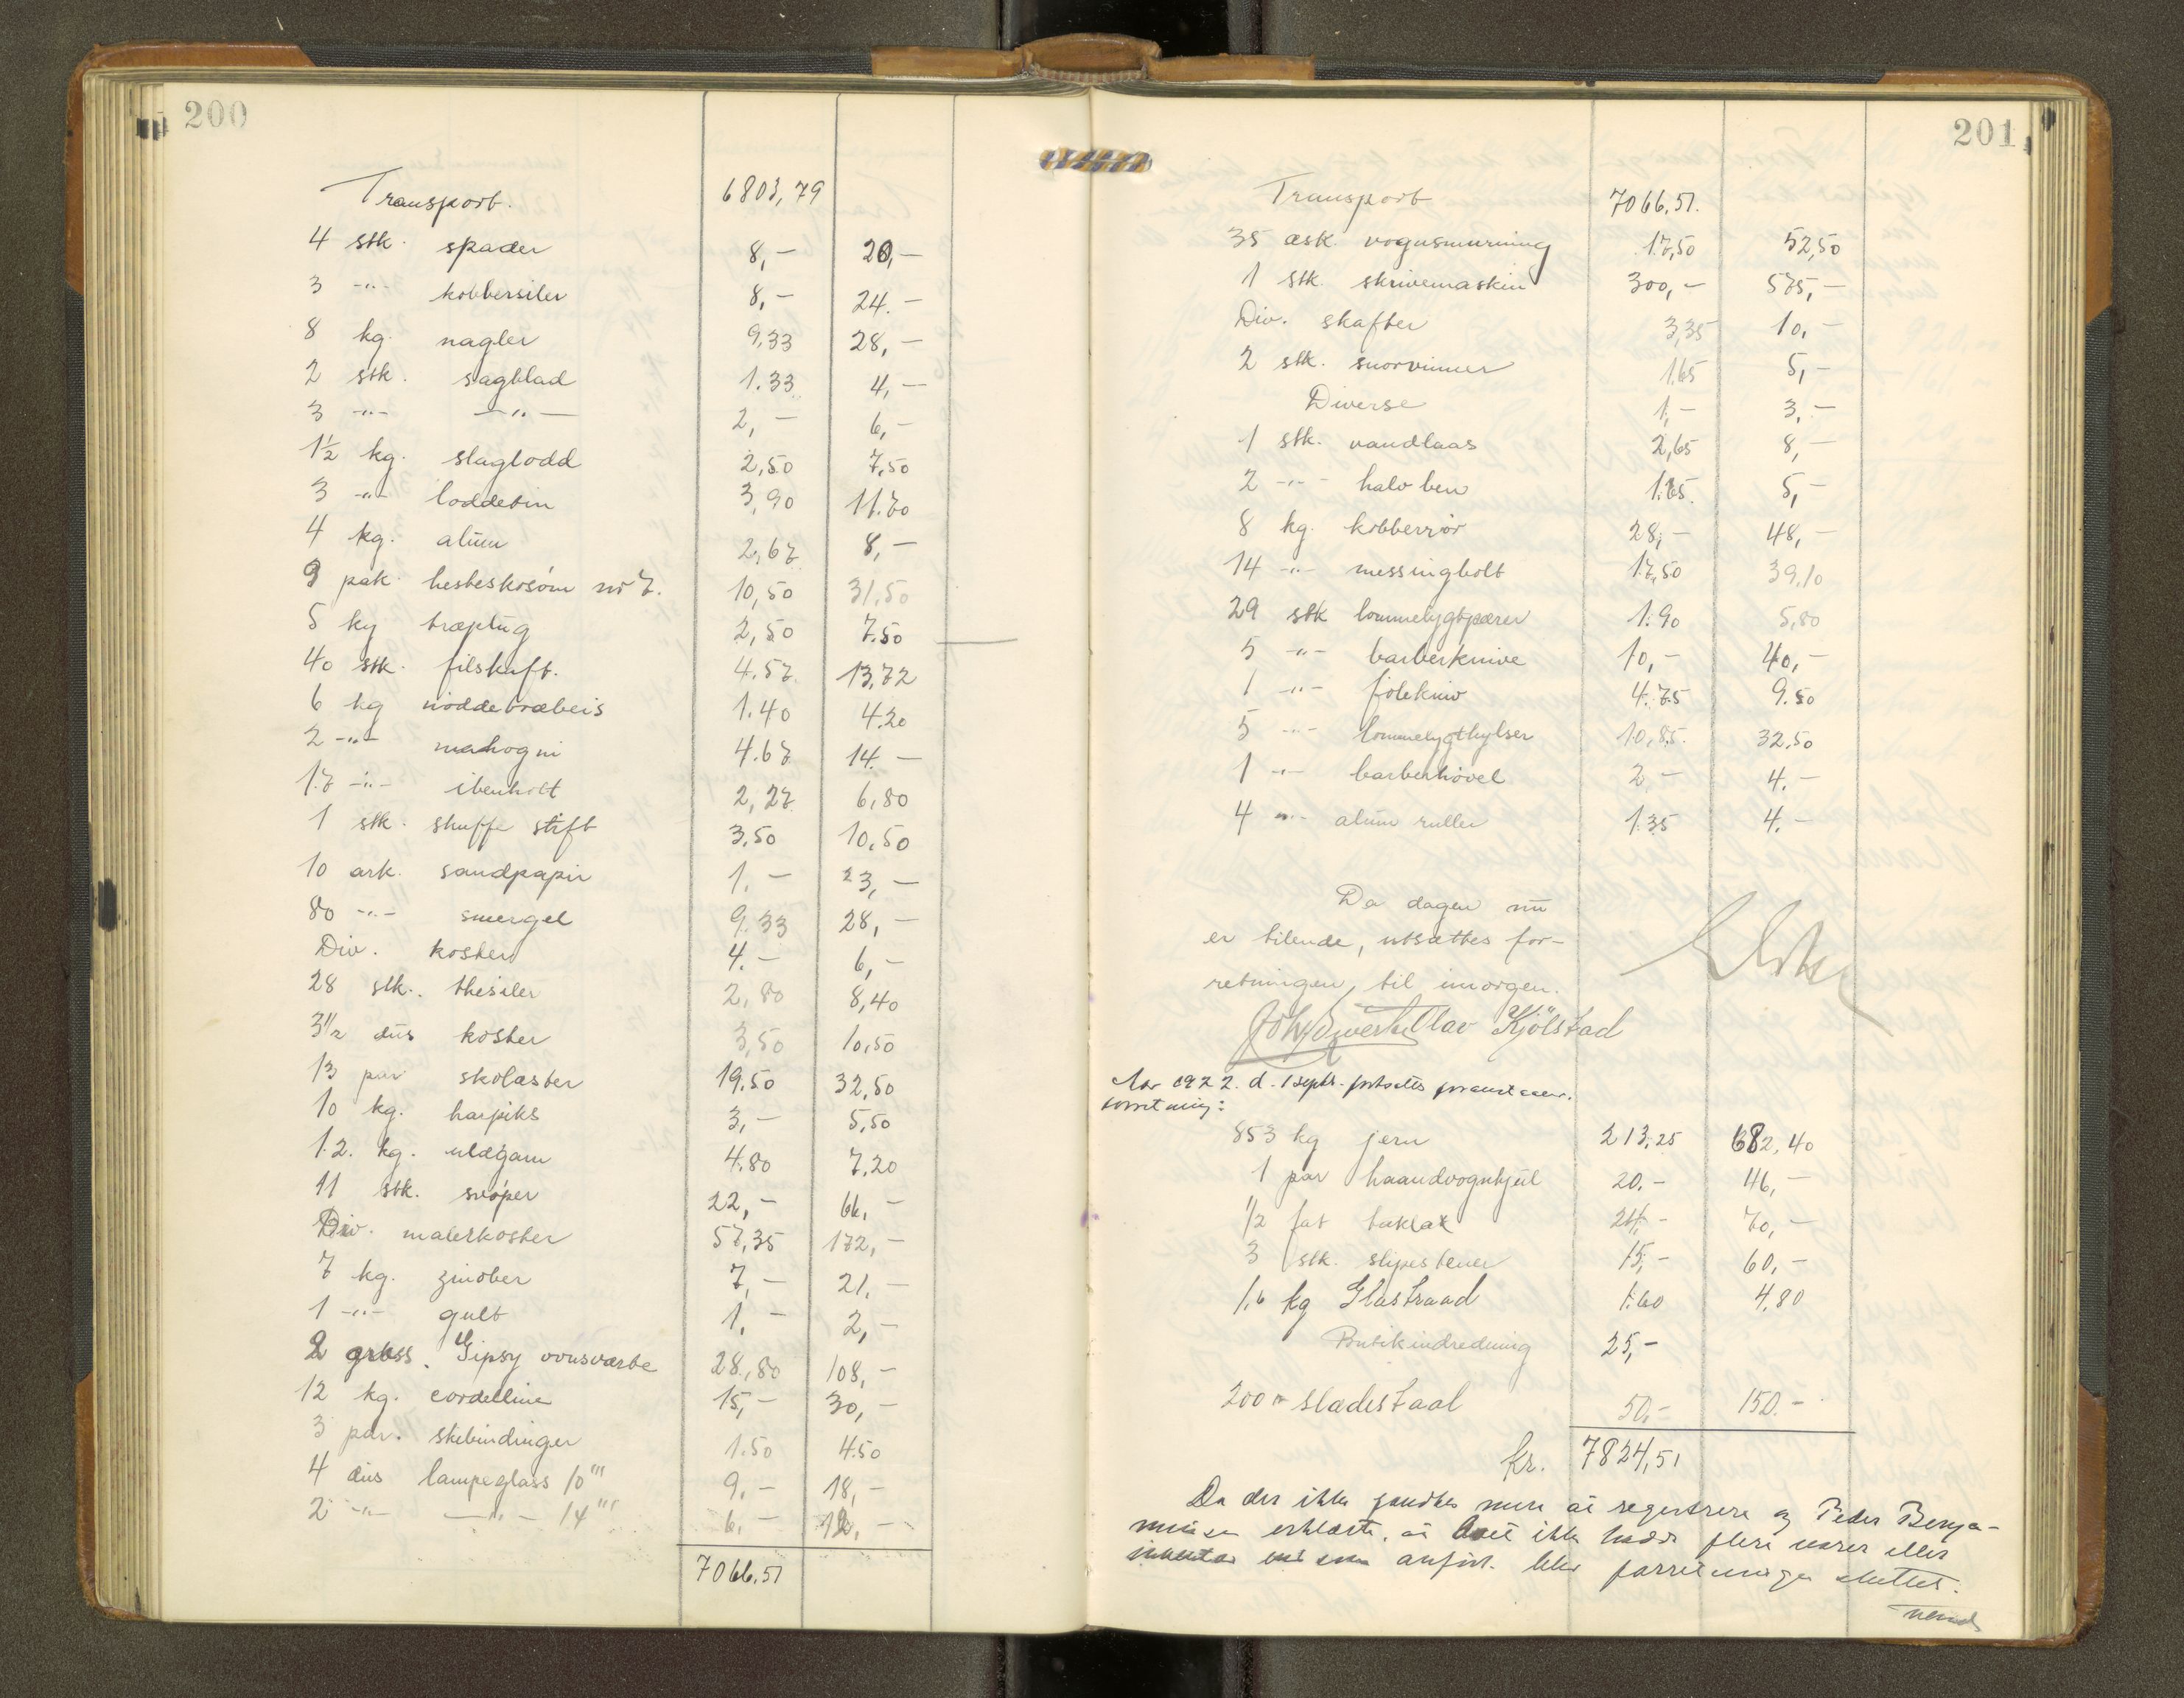 200
Transport. 6803,79
4 stk. spader 8,- 20,-
3 -"- kobbersiler 8,- 24.-
8 kg. nagler 9,33 28,-
2 stk. sagblad 1.33 4,-
3 -"- -"- 2,- 6,-
1½ kg. slaglodd 2,50 7,50
3 -"- loddetin 3,90 11.70
4 kg. alun 2,67 8,-
9 pak. hesteskosöm no 7. 10,50 31,50
5 kg træplug 2,50 7.50
40 stk. filskaft. 4.57 13,72
6 kg nöddetræbeis 1.40 4.20
2 -"- mahogni 4.67 14.-
1.7 -"- ibenholt 2,27 6,80
1 stk. stift 3,50 10,50
10 ark. sandpapir 1.- 3,-
80 -"- smergel 9.33 28,-
Div. koster 4.- 6,-
28 stk. thesiler 2,80 8,40
3½ dus koster 3,50 10,50
13 par skolæster 19.50 32,50
10 kg. harpiks 3,- 5,50
1.2. kg. uldgarn 4.80 7,20
11 stk. svöper 22,- 66,-
Div. malerkoster 57,35 172,-
7 kg. zinober 7,- 21,-
1 -"- gult 1,- 2,-
2 gross. Gipsy ovnsværte 28,80 108,-
12 kg. cordelline 15,- 30,-
3 par. skibindinger 1.50 4.50
4 dus lampeglass 10''' 9.- 18,-
2 -"- -"- 14''' 6.- 12,-
7066.51
201
Transport 7066,51.
35 æsk. vognsmurning 17,50 52,50
1 stk. skrivemaskin 300,- 575,-
Div. skafter 3,35 10,-
2 stk. snorvinner 1.65 5,-
Diverse 1,- 3,-
1 stk. vandlaas 2,65 8,-
2 -"- halv ben 1.65. 5,-
8 kg. kobberrör 28,- 48,-
14 -"- messingbolt 17,50 39,10
29 stk lommelygtpærer 1.90 5,80
5 -"- barberknive 10,- 40,-
1 -"- 4.75 9.50
5 -"- lommelygthylser 10,85. 32,50
1 -"- barberhövel 2- 4.-
4 -"- alun ruller 1.35 4.-
Da dagen nu
er tilende, utsættes for-
retningen til imorgen.
Olav Kjölstad
Aar 1922. d. 1 septr. fortsattes
forretning:
853 kg jern 213,25 682,40
1 par haandvognhjul 20.- 46,-
½ fat taklak 24.- 70,-
3 stk. slipestener 15,- 60,-
1,6 kg Glastraad 1.60 4,80
Butikindredning 25,-
200 " sladestaal 50,- 150.-
kr. 7824,51
Da der ikke fandtes mere at registrere og Peder Benja-
minsen erklærte, at ikke hadde flere varer eller
inventar som anfört. blev forretningen sluttet.